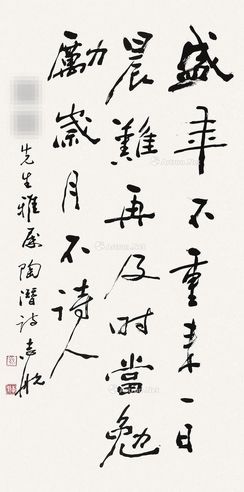 盛年不重来一日
晨難再及时當勉
勵歲月不待人
先生雅属陶潛诗